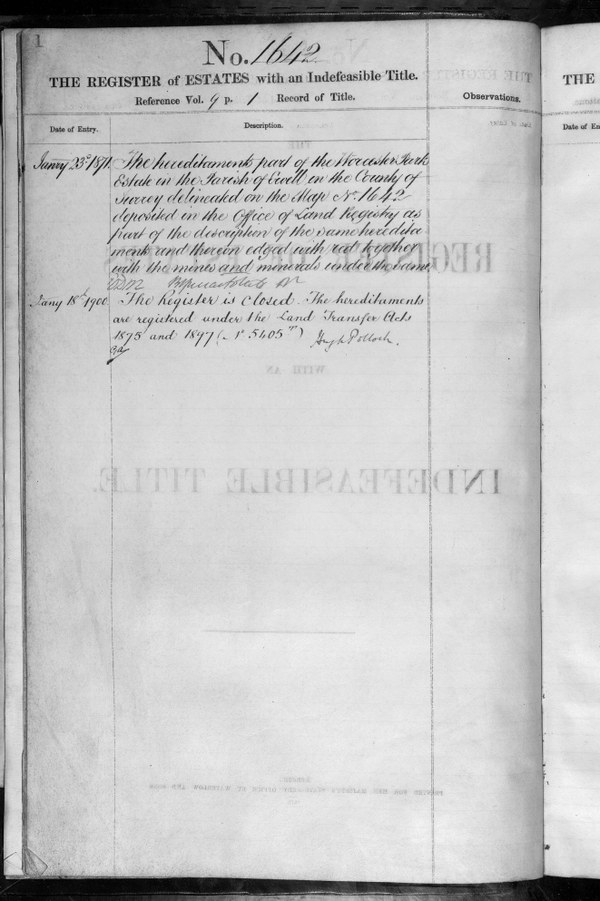 1
No. 1642
THE REGISTER of ESTATES with an Indefeasible Title.
Reference Vol. 9 p. 1 Record of Title.
Observations.
Date of Entry.
Description.
Janry 23rd 1871.
The hereditaments part of the Worcester Park
Estate in the Parish of Ewell in the County of
Surrey delineated on the Map No. 1642
deposited in the Office of Land Registry as
part of the description of the same heredita
ments and therein edged with red together
with the mines and minerals under the same.
Jany 18th 1900
The Register is closed. The hereditaments
are registered under the Land Transfer Acts
1875 and 1897 ( 5405 )
Hugh Pollock.
THE
Date of En
REGISTER
WITH AN
INDEFEASIBLE TITLE.